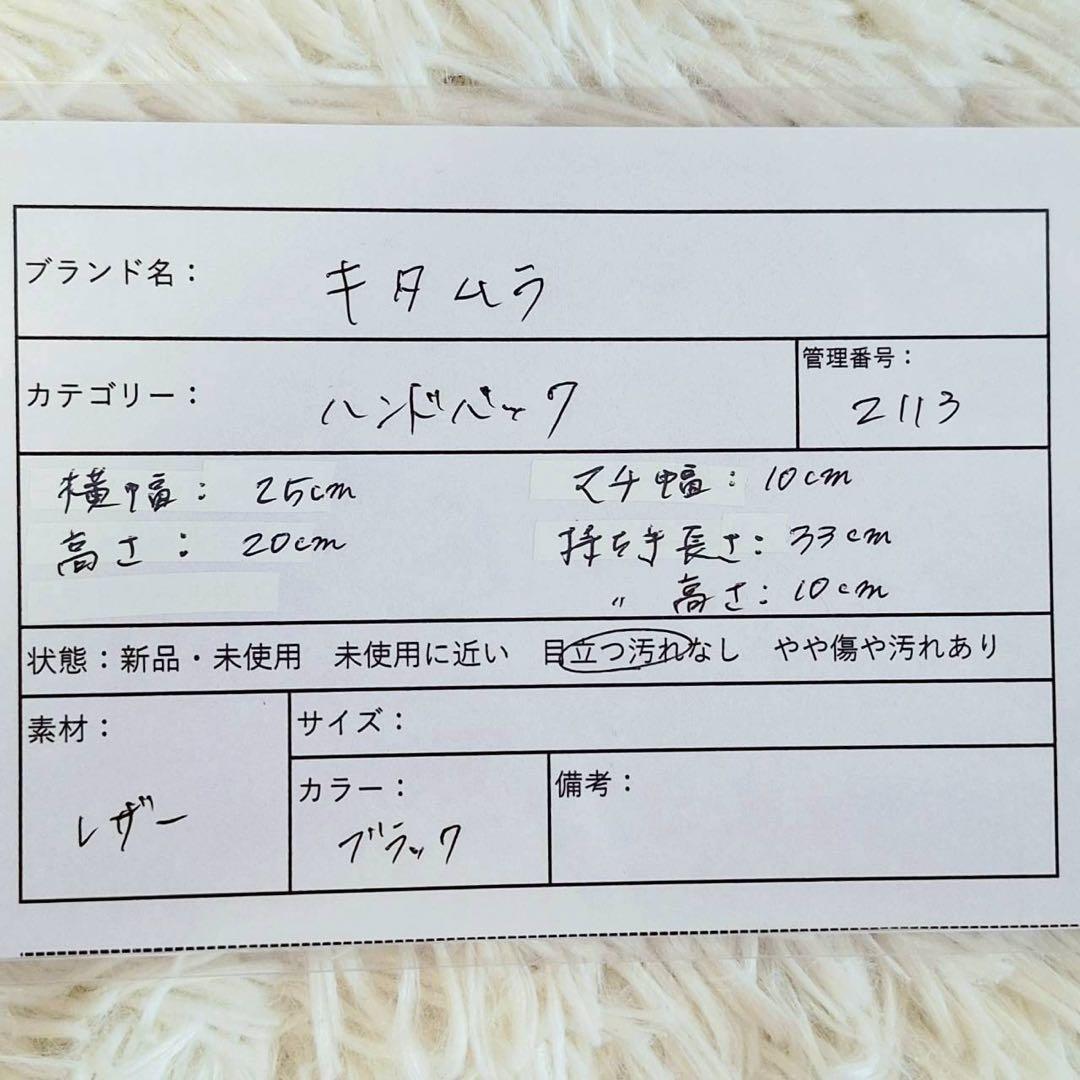 ブランド名： キタムラ
カテゴリー： ハンドバック
管理番号： 2113
横幅： 25cm マチ幅： 10cm
高さ： 20cm 持ち手長さ： 33cm
〃 高さ： 10cm
状態：新品・未使用　未使用に近い　目立つ汚れなし　やや傷や汚れあり
素材： レザー
サイズ：
カラー： ブラック
備考：